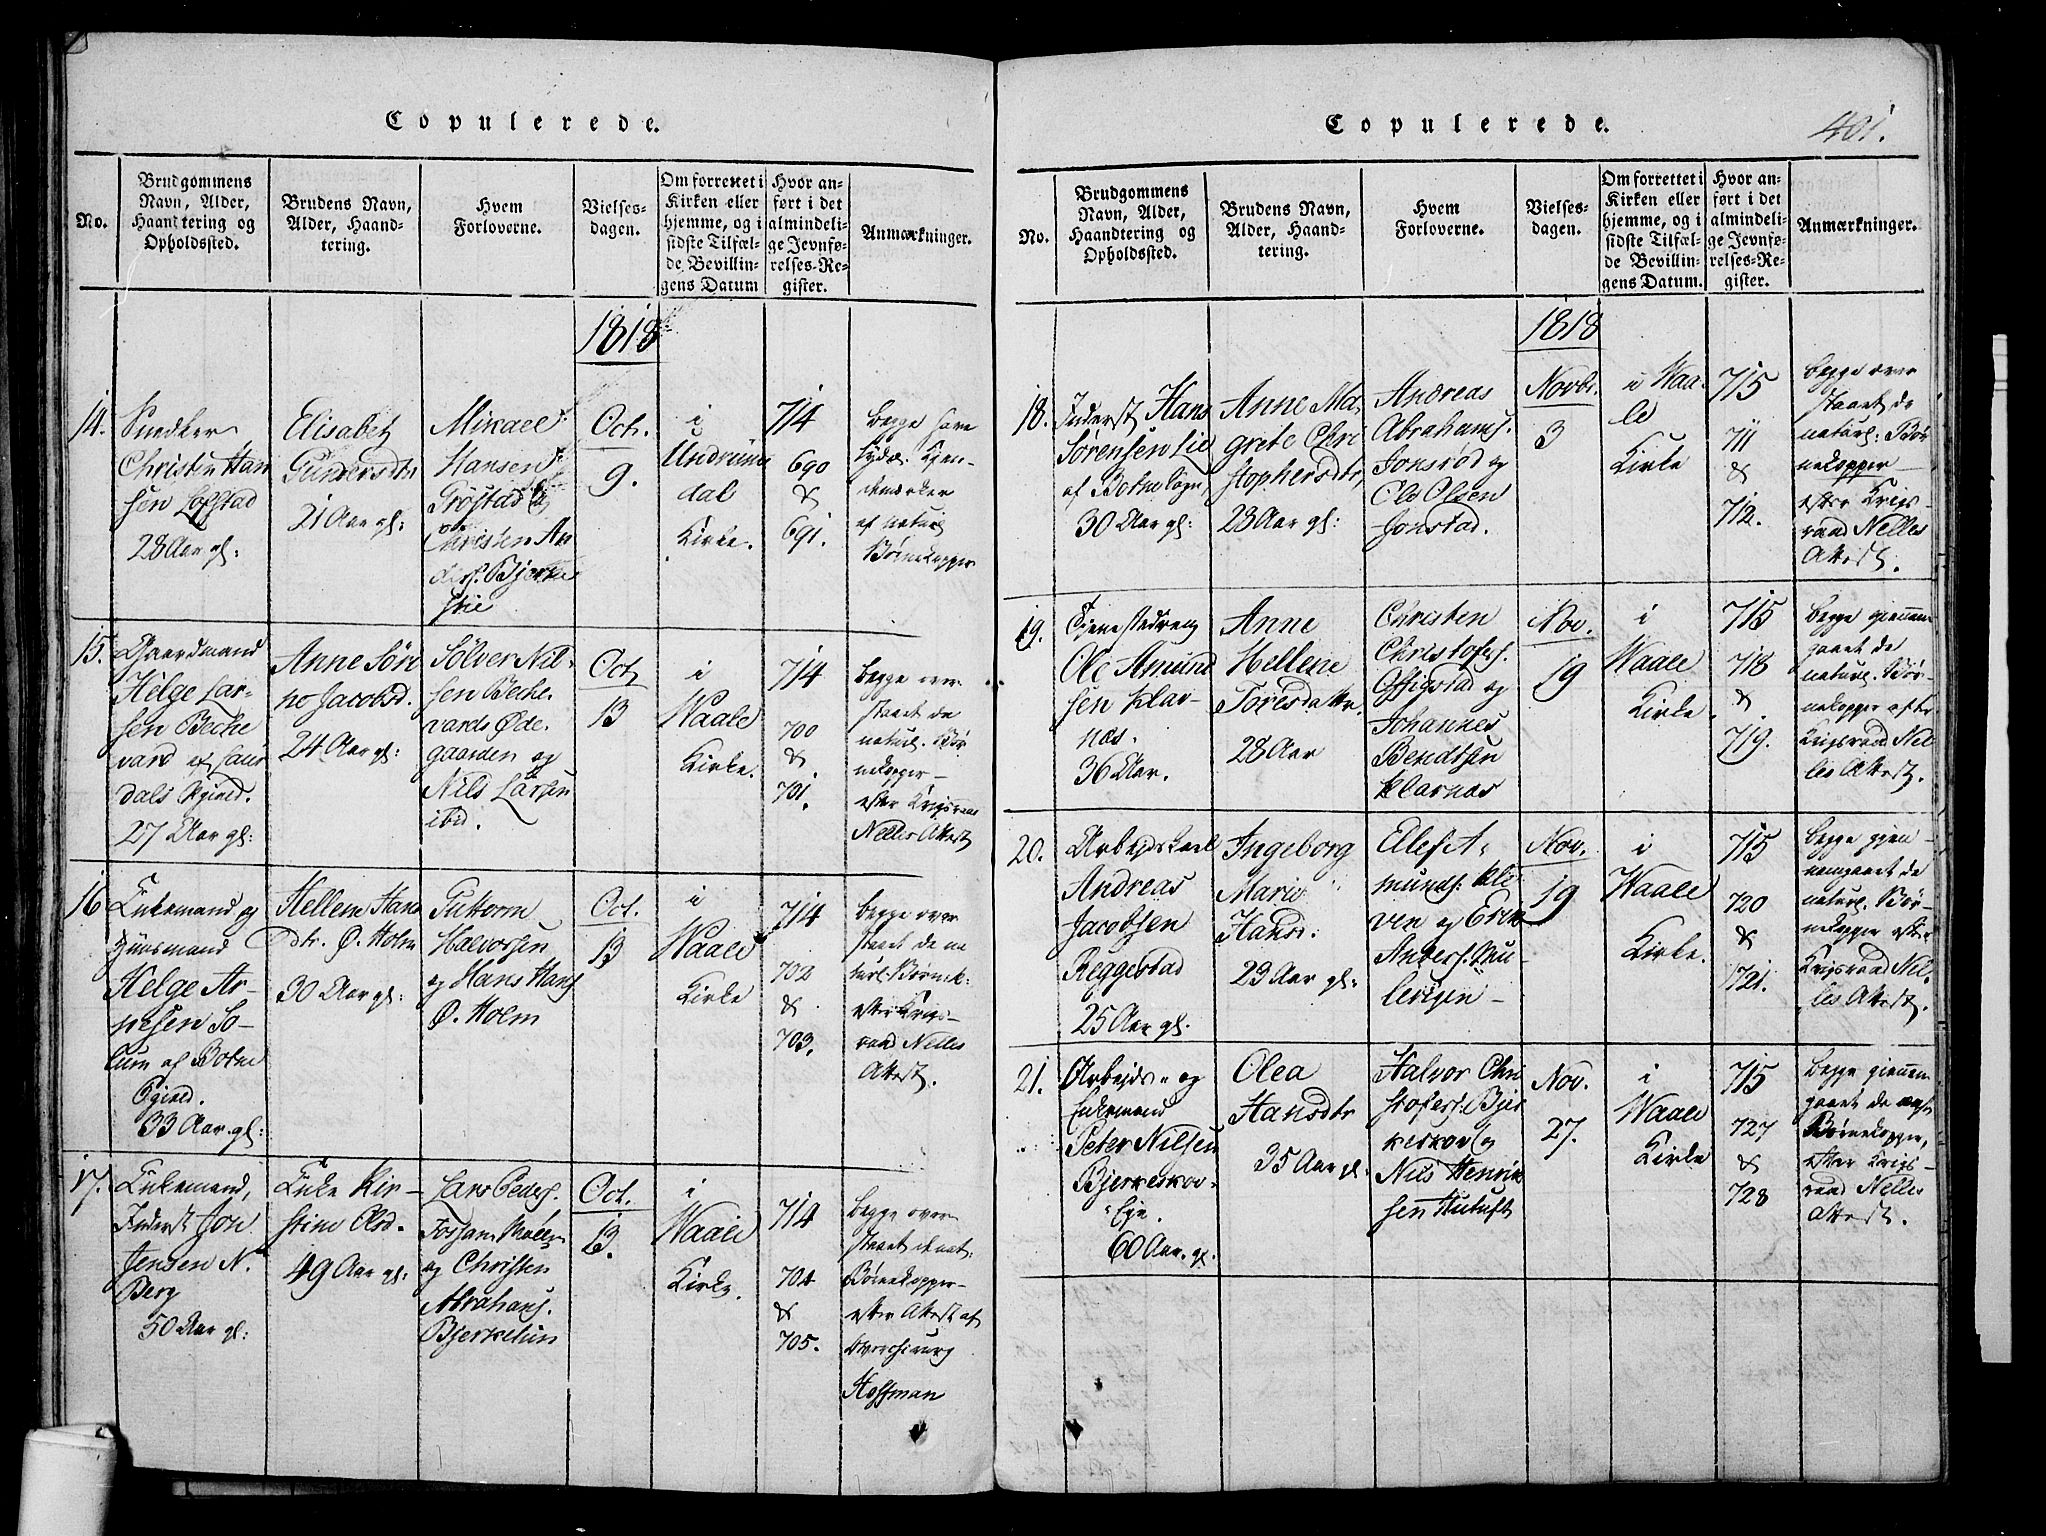 Copulerede.
No.
Brudgommens
Navn, Alder,
Haandtering og
Opholdssted.
Brudens Navn,
Alder, Haand-
tering.
Hvem
Forloverne.
Vielses-
dagen.
Om forrettet i
Kirken eller
hjemme, og i
sidste Tilfæl-
de Bevillin-
gens Datum
Hvor an-
ført i det
almindeli-
ge Jevnfø-
relses-Re-
gister.
Anmærkninger.
1818
14.
Snedker
Christen Han
sen Lofstad
28 Aar gl:
Elisabet
Gundersdtr
21 Aar gl:
Mikael
Hansen
Christen An
ders. Bjerke
Oct.
9.
i
Undrums
dal
Kirke.
714
690
&
691.
Begge have
Kjen-
demærker
af naturl
Børnekopper
15.
Gaardmand
Helge Lar-
sen Beche
vard af Laur
dals Pgjeld.
27 Aar gl:
Anne Søri
ne Jacobsd.
24 Aar gl:
Sølver Nil-
sen Beche
vards Øde-
gaarden og
Nils Larsen
ibid.
Oct
13
i
Waale
Kirke.
714
700
&
701.
Begge over-
staaet de
naturl. Bør
nekopper-
efter Krigsraad
Nelles Attest
16
Enkemand og
Huusmand
Helge Ar-
nesen So-
lum af Botne
Pgjeld.
33 Aar. gl:
Hellene Hans
Ddtr. Ø. Holm
30 Aar gl:
Guttorm
Halvorsen
og Hans Hans
Ø. Holm
Oct.
13
i
Waale
Kirke
714
702
&
703.
Begge over
staaet de na
turl. Børnek:
efter Krigs-
raad Nelles
Attest.
17.
Enkemand,
Inderst Jon
Jensen N.
Berg
50 Aar gl:
Enke Kir-
stine Olsd.
49 Aar gl:
Lars Peders.
og Christen
Abrahams.
Bjerkelun
Oct.
13.
i
Waale
Kirke.
714
704
&
705.
Begge over
staaet de nat.
Børnekopper-
efter Attest af
Overchirurg
Hoffman
Copulerede.
401.
No.
Brudgommens
Navn, Alder,
Haandtering og
Opholdssted.
Brudens Navn,
Alder, Haand-
tering.
Hvem
Forloverne.
Vielses-
dagen.
Om forrettet i
Kirken eller
hjemme, og i
sidste Tilfæl-
de Bevillin-
gens Datum.
Hvor an-
ført i det
almindeli-
ge Jevnfø-
relses-Re-
gister.
Anmærkninger.
1818
18.
Inderst Hans
Sørensen Lie
af Botne Sogn,
30 Aar gl:
Anne Ma,
grete Chri
stophersdtr,
23 Aar gl:
Andreas
Abrahams.
Jonsrod og
Ole Olsen
Jonstad.
Novbr.
3
i Waa-
le
Kirke
715
711
&
712.
Begge over
staaet de
naturl: Bør
nekopper
efter Krigs-
raad Nelles
Attest.
19.
Tjenestedreng
Ole Amund
sen Klav-
nes.
36 Aar.
Anne
Hellene
Toresdattr.
28 Aar
Christen
Christofers.
Offigstad og
Johannes
Bendtsen
Klavnes
Nov.
19
i
Waale
Kirke.
715
718
&
719.
Begge giennem
gaaet de
naturl. Bør-
nekopper efter
Krigsraad Nel-
les Attest.
20.
Arbejdskarl
Andreas
Jacobsen
Reggestad
25 Aar gl.
Ingeborg
Marie
Hansd.
23 Aar gl:
Elef A-
munds. Kle
ven og Erik
Anders. Mu
levigen -
Nov.
19
i
Waale
Kirke.
715
720
&
721.
Begge gjen
nemgaaet de
naturl. Bør-
nekopper efter
Krigsraad Nel-
les Attest.
21.
Arbejds- og
Enkemand
Peter Nilsen
Bjerkeskov-
Eje.
60 Aar. gl.
Olea
Hansdtr
35 Aar gl.
Halvor Chri
stofers. Bjer
keskov og
Nils Henrik
sen Hutuft
Nov.
27.
i
Waale
Kirke
715
727
&
728
Begge giennem
gaaet de
Børnekopper,
efter Krigs-
raad Nelles
Attest.